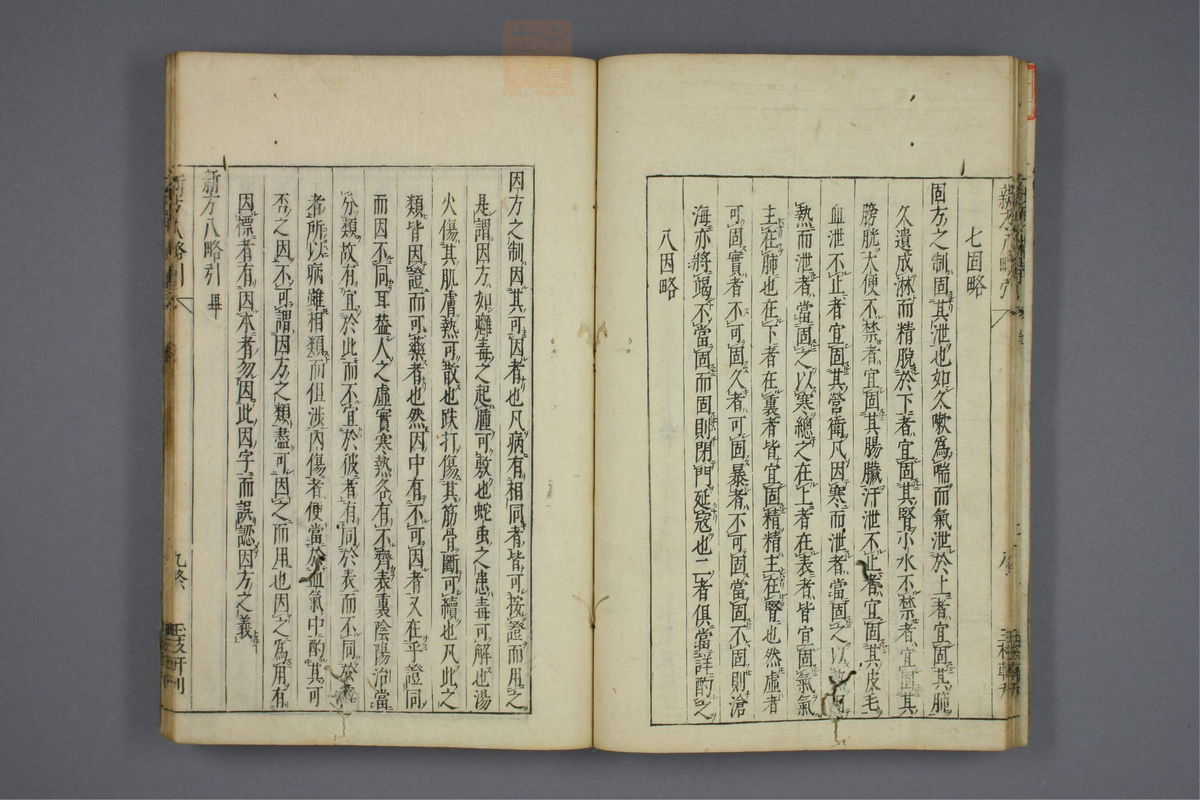 七固略
固方之制固其泄也如久嗽為喘而氣泄於上者宜固其肺
久遺成淋而精脫於下者宜固其腎小水不禁者宜固其
膀胱大便不禁者宜固其腸臟汗泄不止者宜固其皮毛
血泄不止者宜固其營衛凡因寒而泄者當固之以熱因
熱而泄者當固之以寒總之在上者在表者皆宜固氣氣
主在肺也在下者在裏者皆宜固精精主在腎也然虛者
可固實者不可固久者可固暴者不可固當固不固則滄
海亦將竭不當固而固則閉門延寇也二者俱當詳酌之
八因略
因方之制因其可因者也凡病有相同者皆可按證而用之
是謂因方如癰毒之起腫可敷也蛇虫之患毒可解也湯
火傷其肌膚熱可散也跌打傷其筋骨斷可續也凡此之
類皆因證而可藥者也然因中有不可因者又在乎證同
而因不同耳蓋人之虛實寒熱各有不齊表裏陰陽治當
分類故有宜於此而不宜於彼者有同於表而不同於
者所以病雖相類而但涉內傷者便當於血氣中酌其可
否之因不可謂因方之類盡可因之而用也因之為用有
因標者有因本者勿因此因字而誤認因方之義
新方八略引 畢
新方八略引
九終